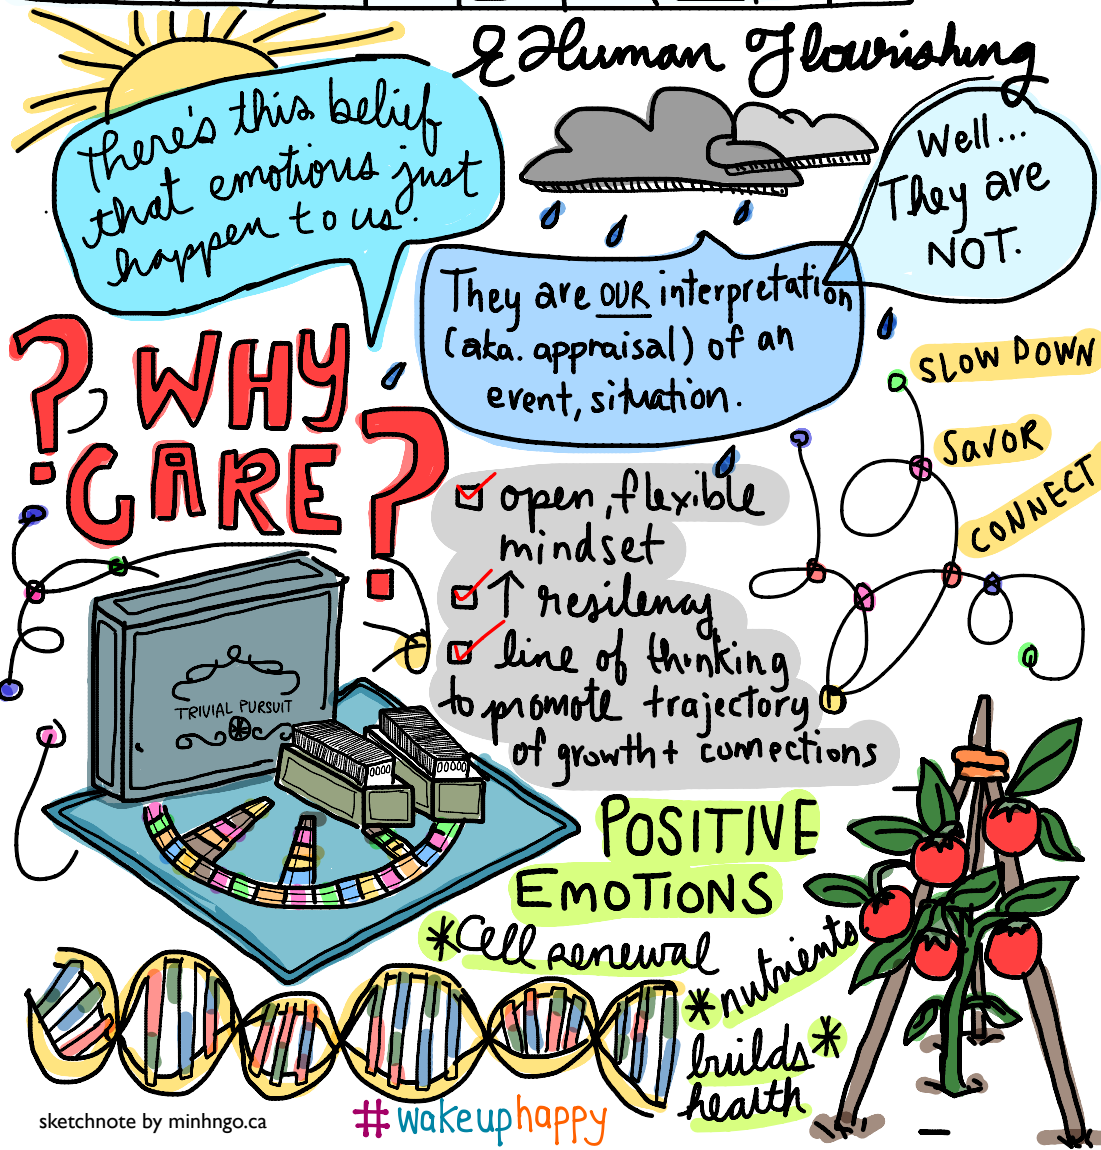 & Human Flourishing
There's this belief
that emotions just
happen to us.
Well...
They are
NOT.
They are OUR interpretation
(aka. appraisal) of an
event, situation.
? WHY
CARE?
SLOW DOWN
SAVOR
CONNECT
open, flexible
mindset
↑ resilency
line of thinking
to promote trajectory
of growth + connections
TRIVIAL PURSUIT
POSITIVE
EMOTIONS
*Cell renewal
*nutrients
builds*
health
#wakeuphappy
sketchnote by minhngo.ca